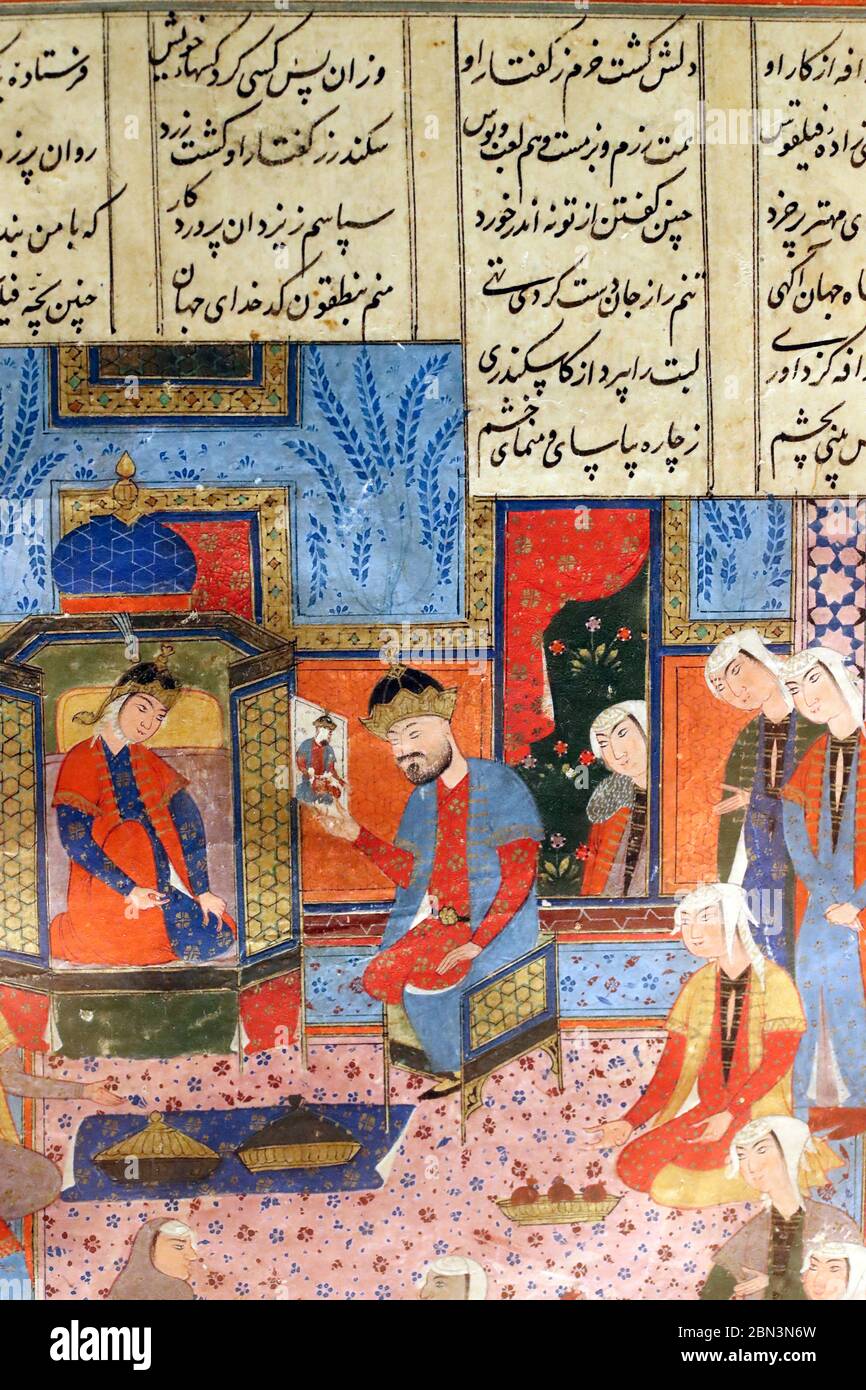 افه از کار او دلش گشت خرم ز گفتار او وزان پس کسی کرد کسها ز خویش فرستاده
زاده فیلقوس همت رزم و بزمست و هم لعب و بوس سکندر ز گفتار او گشت زرد روان پر ز
ی مهتر پر خرد چنین گفتن از تو نه اندر خورد سپاسم ز یزدان پروردکار که با من
اه جهان آگهی تنم را ز جان دست کردی تهی منم بیطقون کدخدای جهان چنین بچه
لبت را بپرداز کاسکندری
بینی بچشم ز چاره بیاسای و منمای خشم
alamy
Image ID: 2BN3N6W
www.alamy.com